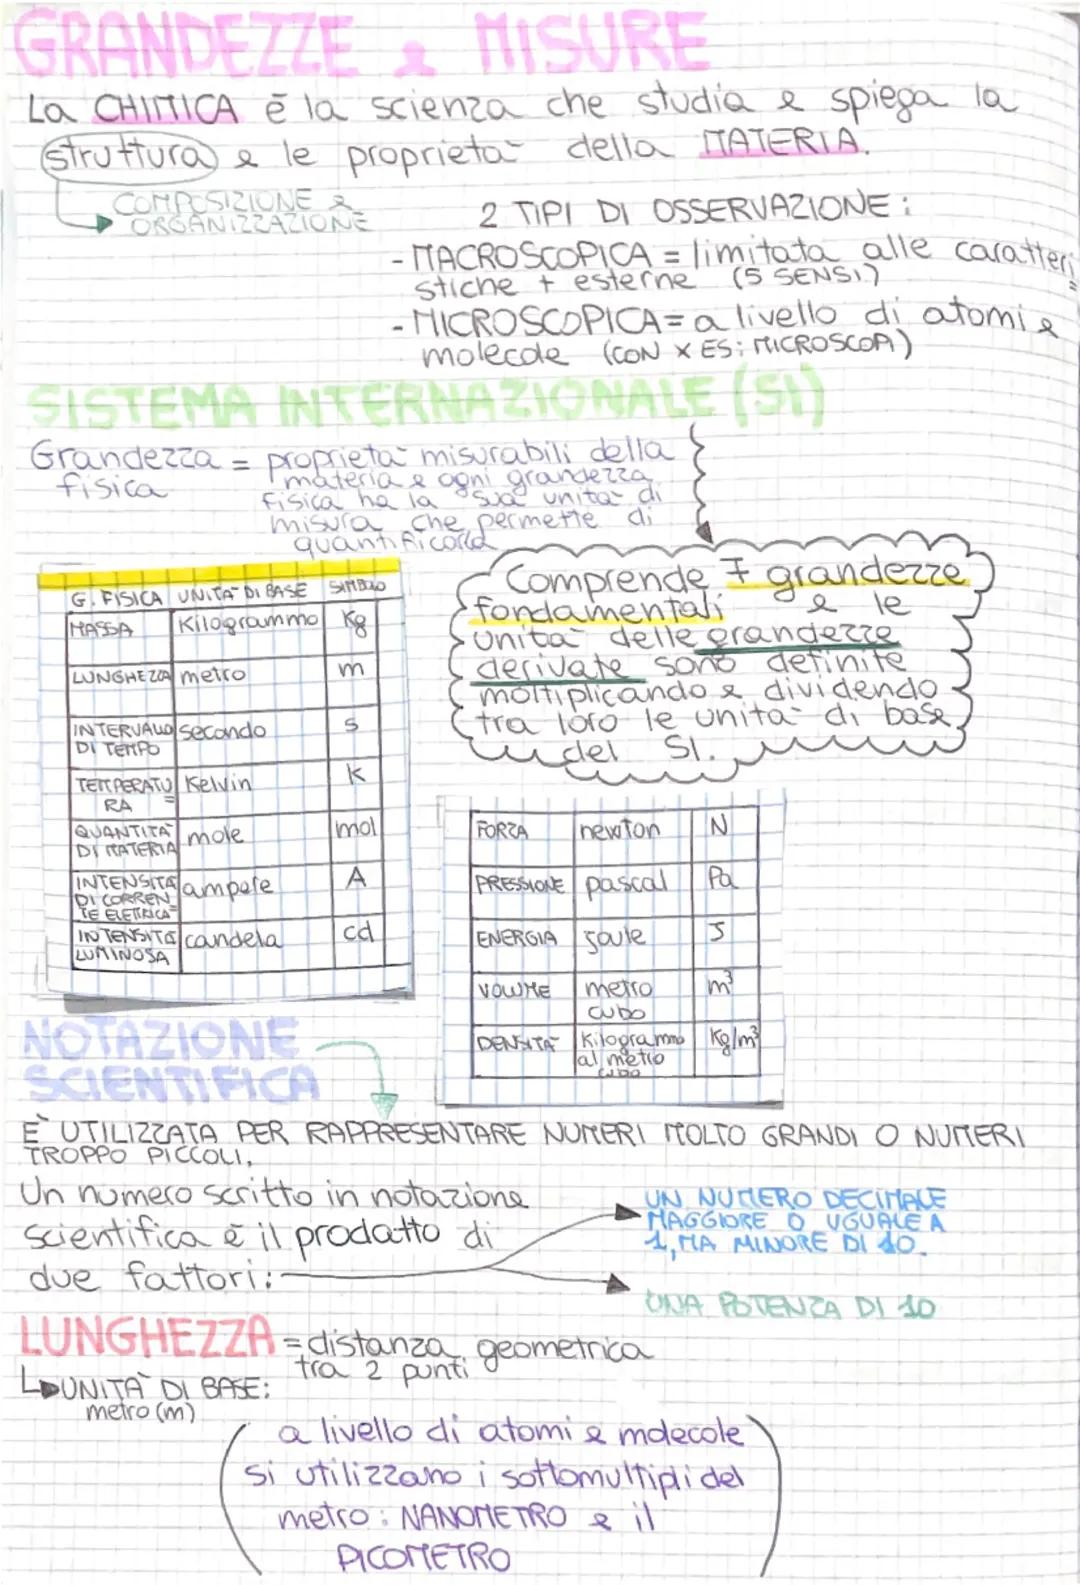 GRANDEZZE e MISURE
La CHIMICA è la scienza che studia e spiega la
struttura e le proprietà della MATERIA.
COMPOSIZIONE e
ORGANIZZAZIONE
2 TIPI DI OSSERVAZIONE:
- MACROSCOPICA = limitata alle caratteri
stiche + esterne (5 SENSI)
- MICROSCOPICA = a livello di atomi e
molecole (CON X ES: MICROSCOPI)
SISTEMA INTERNAZIONALE (SI)
Grandezza = proprietà misurabili della
fisica materia e ogni grandezza
fisica ha la sua unità di
misura che permette di
quantificarla
Comprende 7 grandezze
fondamentali e le
unità delle grandezze
derivate sono definite
moltiplicando e dividendo
tra loro le unità di base
del SI.
G. FISICA UNITÀ DI BASE SIMBOLO
MASSA Kilogrammo Kg
LUNGHEZZA metro m
INTERVALLO secondo s
DI TEMPO
TEMPERATU Kelvin K
RA
QUANTITÀ mole mol
DI MATERIA
INTENSITÀ ampere A
DI CORREN
TE ELETTRICA
INTENSITÀ candela cd
LUMINOSA
FORZA newton N
PRESSIONE pascal Pa
ENERGIA joule J
VOLUME metro m³
cubo
DENSITÀ Kilogrammo Kg/m³
al metro
cubo
NOTAZIONE
SCIENTIFICA
È UTILIZZATA PER RAPPRESENTARE NUMERI MOLTO GRANDI O NUMERI
TROPPO PICCOLI.
Un numero scritto in notazione
scientifica è il prodotto di
due fattori:
UN NUMERO DECIMALE
MAGGIORE O UGUALE A
1, MA MINORE DI 10.
UNA POTENZA DI 10
LUNGHEZZA = distanza geometrica
tra 2 punti
UNITÀ DI BASE:
metro (m)
a livello di atomi e molecole
si utilizzano i sottomultipli del
metro: NANOMETRO e il
PICOMETRO